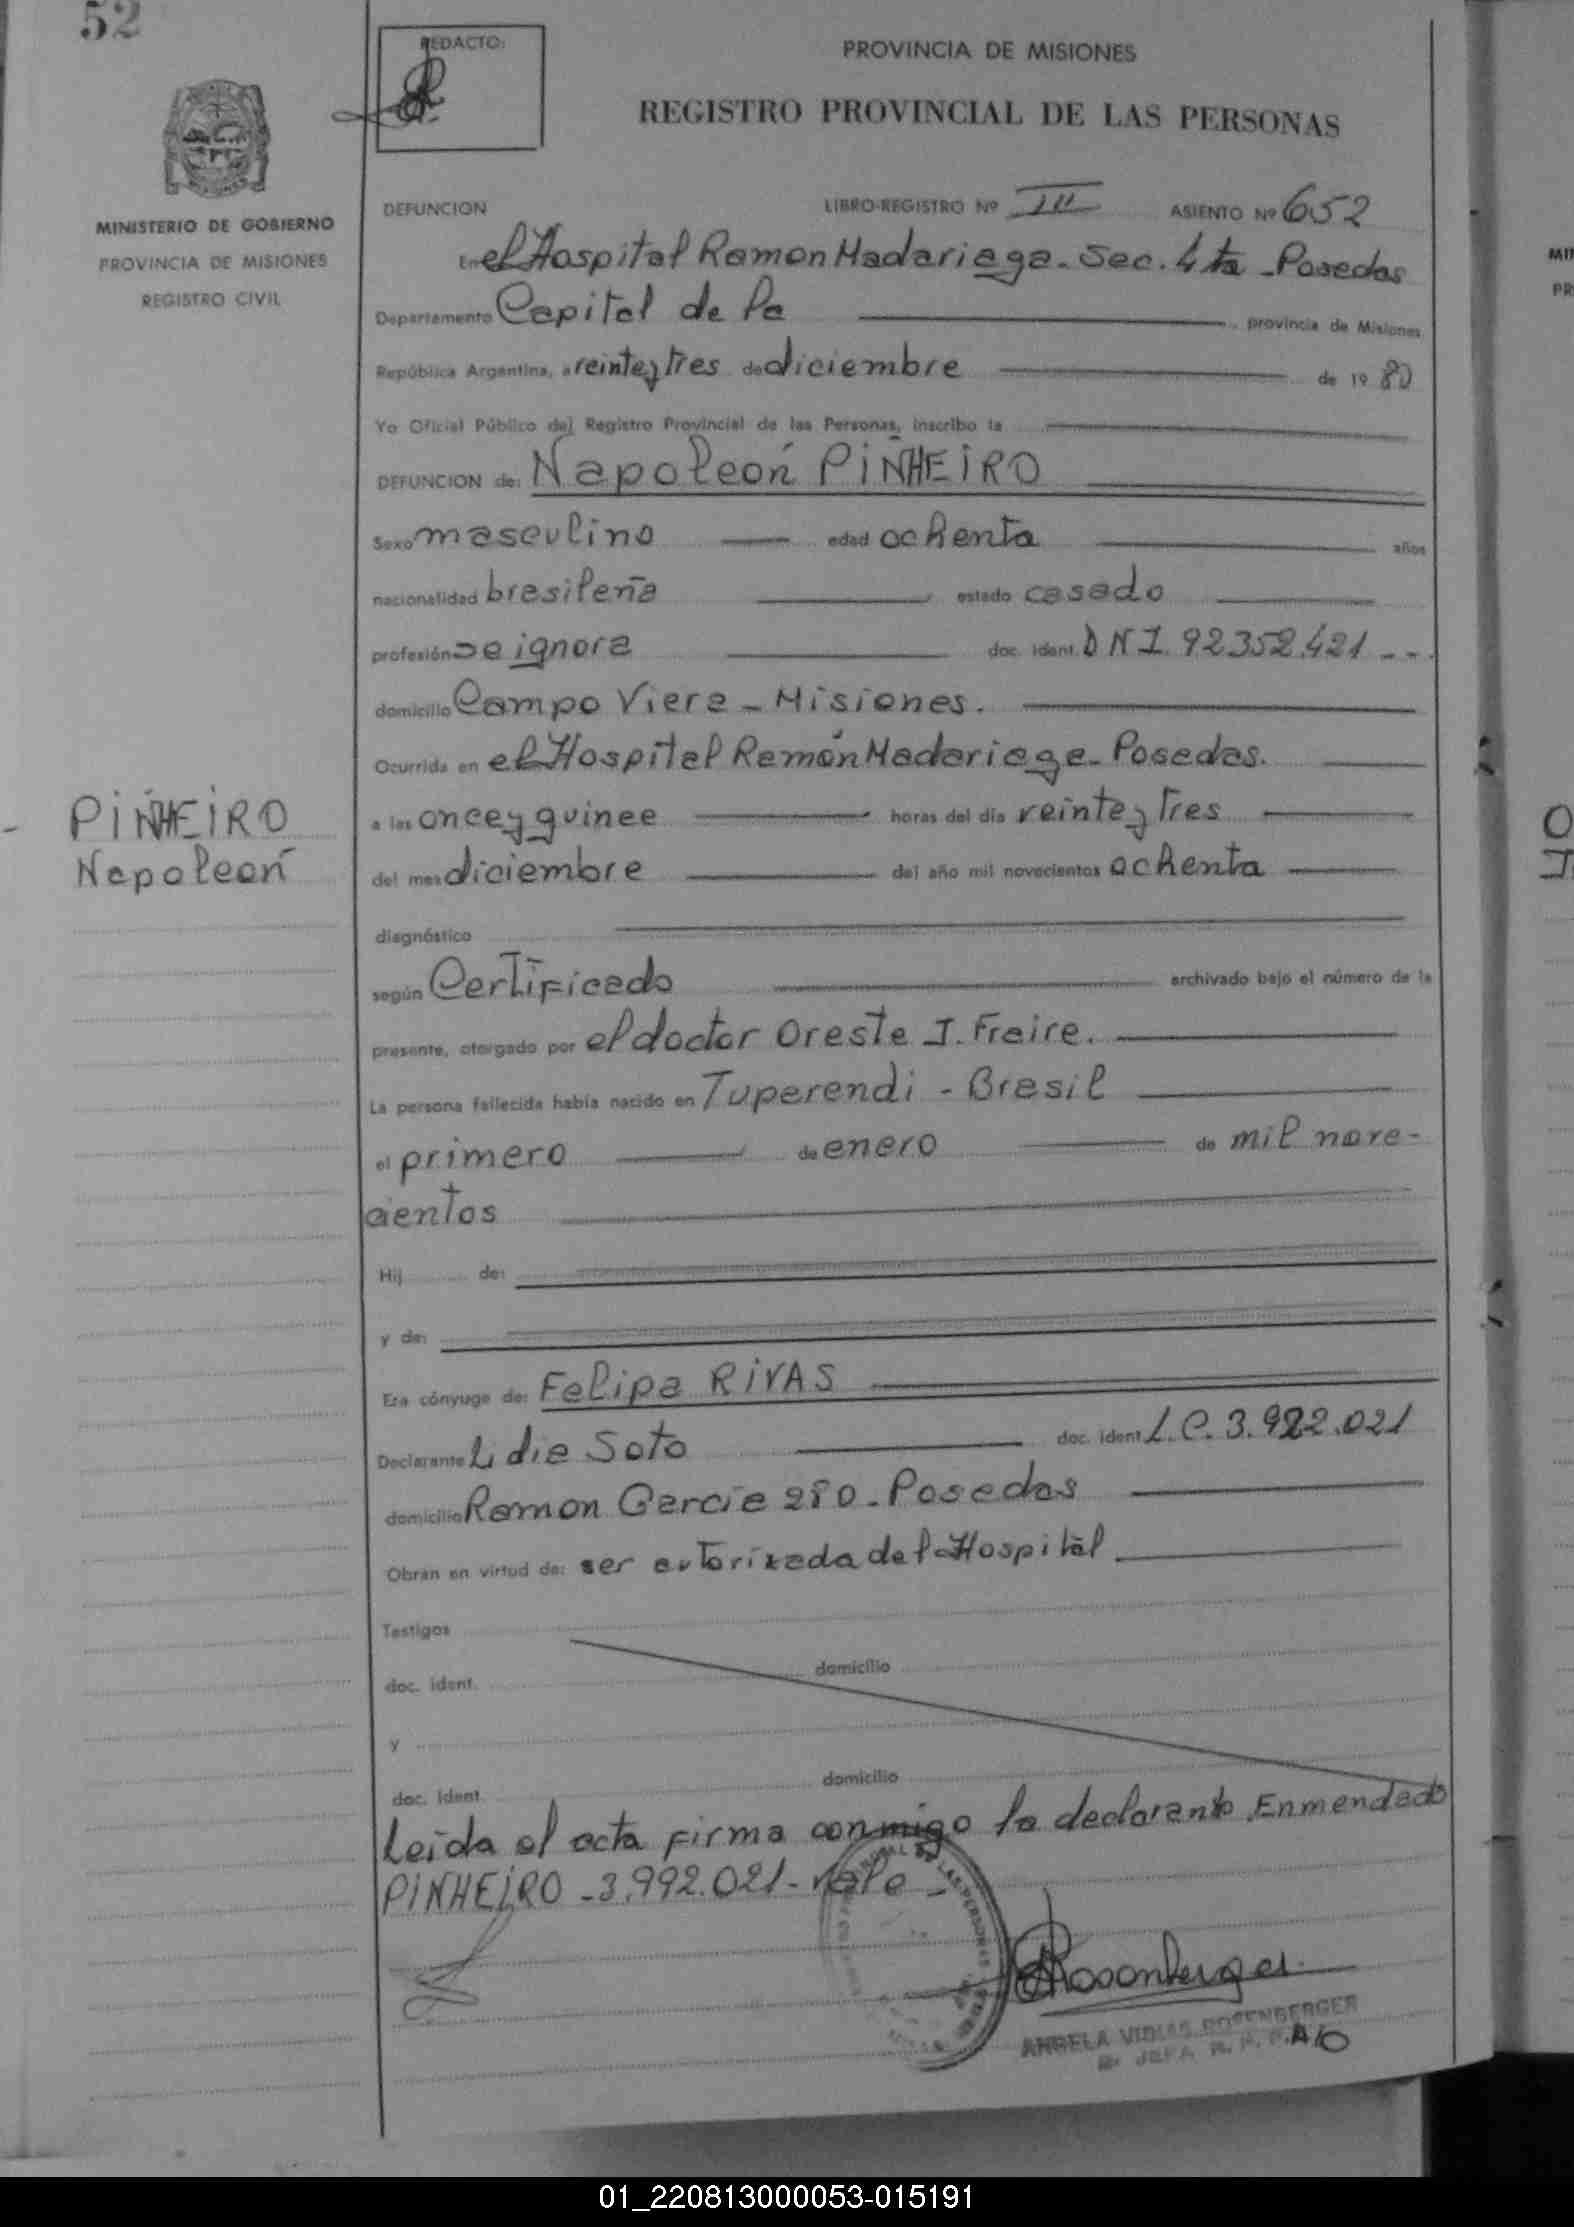 52
REDACTO:
PROVINCIA DE MISIONES
REGISTRO PROVINCIAL DE LAS PERSONAS
MINISTERIO DE GOBIERNO
PROVINCIA DE MISIONES
REGISTRO CIVIL
DEFUNCION LIBRO-REGISTRO Nº III ASIENTO Nº 652
En el Hospital Ramon Madariaga - Sec. 4ta - Posadas
Departamento Capital de la provincia de Misiones
República Argentina, a veinte y tres de diciembre de 19 80
Yo Oficial Público del Registro Provincial de las Personas, inscribo la
DEFUNCION de: Napoleón PIÑHEIRO
Sexo masculino edad ochenta años
nacionalidad brasileña estado casado
profesión se ignora doc. ident. DNI 92352.421 - - .
domicilio Campo Viera - Misiones.
Ocurrida en el Hospital Ramón Madariaga - Posadas.
a las once y quince horas del día veinte y tres
del mes diciembre del año mil novecientos ochenta
diagnóstico
según Certificado archivado bajo el número de la
presente, otorgado por el doctor Oreste J. Freire.
La persona fallecida había nacido en Tuperendi - Brasil
el primero de enero de mil nove-
cientos
Hij de:
y de:
Era cónyuge de: Felipa RIVAS
Declarante Lidia Soto doc. ident L.C. 3.992.021
domicilio Ramon Garcia 280 - Posadas
Obran en virtud de: ser autorizada del Hospital
Testigos
doc. ident. domicilio
y
doc. ident. domicilio
Leida el acta firma conmigo la declarante. Enmendado
PINHEIRO - 3.992.021 - vale -
PIÑHEIRO
Napoleón
Rosenberger
ANGELA ROSENBERGER
JEFA
01_220813000053-015191